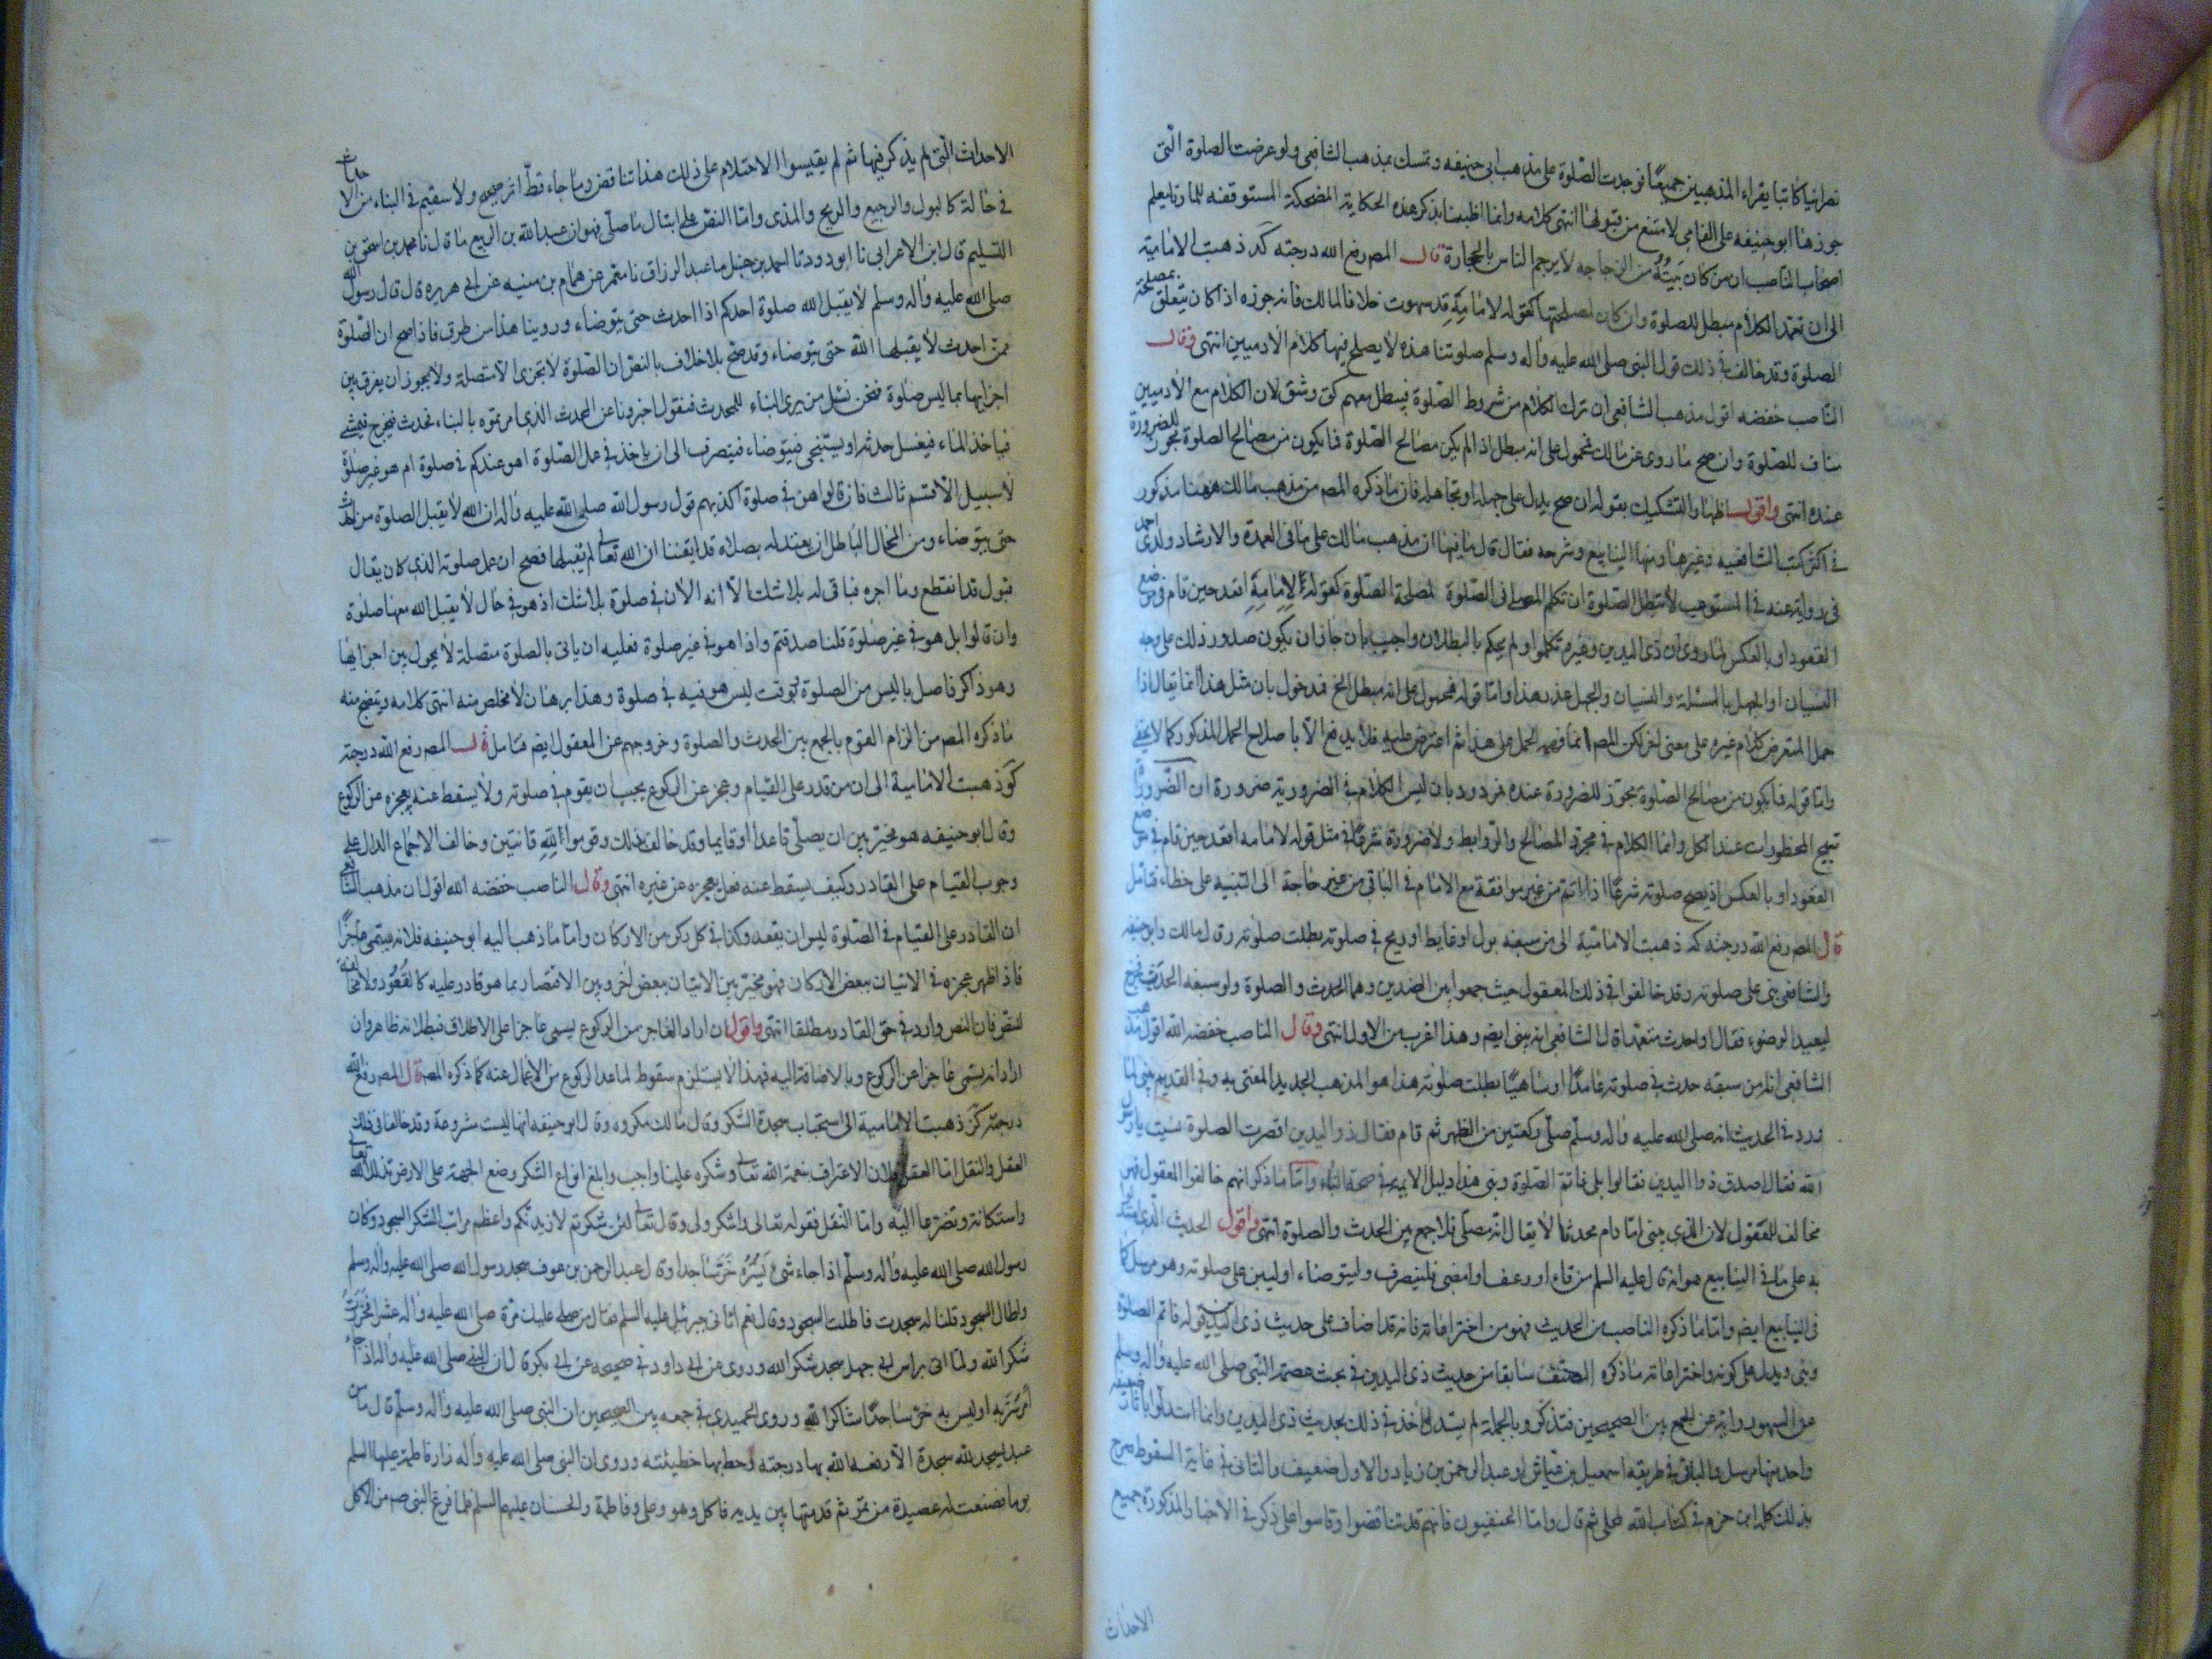 نصرانيا كاتبا يقراء المذهبين جميعًا فوجدت الصّلوة على مذهب ابى حنيفه وتمسك بمذهب الشافعى ولو عرضت الصلوة الّتى
جوزها ابو حنيفه على العامى لامتنع من قبولها انتهى كلامه وانما اطنبنا بذكر هذه الحكاية المضحكة
اصحاب الناصب ان من كان بَيتُهُ من الزجاجه لا يرجم الناس بالحجارة قال المصر رفع الله درجته كَد ذهبت الامامية
الى ان تعمّد الكلام مبطل للصلوة وان كان لمصلحتها كقوله لامامِهِ قد سهوت خلافا لمالك فانه جوزه اذا كان يتعلق بمصلحة
الصلوة وقد خالف فى ذلك قول النبى صلى الله عليه واله وسلم صلوتنا هذه لا يصلح فيها كلام الادميين انتهى وقال
الناصب خفضه اقول مذهب الشافعى ان ترك الكلام من شروط الصّلوة فيبطل معهم كق وشق لان الكلام مع الادميين
مناف للصّلوة وان صح ما روى عن مالك محمول على انه مبطل اذا لم يكن مصالح الصّلوة فما يكون من مصالح الصلوة مجوز للضرورة
عنده انتهى واقول اظهار التشكيك بقوله ان صح يدل على جهله او تجاهله فان ما ذكره المصر من مذهب مالك ههنا مذكور
فى اكثر كتب الشافعيه وغيرها ومنها الينابيع وشرحه فقال قال ما فيها ان مذهب مالك على ما فى العمدة والارشاد ولدى احمد
فى رواية عنه فى المستوعب لا تبطل الصّلوة ان تكلم المصلى فى الصّلوة لمصلحة الصّلوة كقوله لِاِمامِهِ اقعد حين قام فى موضع
القعود او بالعكس لما روى ان ذى اليدين وغيره تكلموا ولم يحكم بالبطلان واجيب بان جاز ان يكون صدور ذلك على وجه
النسيان او الجهل بالمسئلة والنسيان والجهل عذر هذا واما قوله فمحمول على انه مبطل الخ فمدخول بان مثل هذا انما يقال اذا
حمل المتعرض كلام غيره على معنى لغو لكن المصر انما فهم الحمل على هذا ثم اعترض عليه فلا يدفع الّا باصلاح الحمل المذكور كما لا يخفى
واما قوله فما يكون من مصالح الصّلوة مجوّز للضرورة عنده فمردود بان ليس الكلام فى الضرورية ضرورة ان الضّرورات
تبيح المحظورات عند الكل وانما الكلام فى مجرّد المصالح والروابط ولا ضرورة شرعًا فى مثل قوله لامامه اقعد حين قام فى موضع
القعود او بالعكس اذ يصح صلوته شرعًا اذا اتمّ من غير موافقة مع الامام فى الباقى من غير حاجة الى التنبيه على خطاء فتامل
قال المصر رفع الله درجته كه ذهبت الامامية الى من سبقه بول او غايط او ريح فى صلوته بطلت صلوته وقال مالك وابو حنيفه
والشافعى يبنى على صلوته وقد خالفوا فى ذلك المعقول حيث جمعوا بين الضدين وهما الحدث والصلوة ولو سبقه الحدث فخرج
ليعيد الوضوء فقال او احدث متعمدا قال الشافعى انه يبنى ايضا وهذا اغرب من الاول انتهى وقال الناصب خفضه الله اقول مذهب
الشافعى انه من سبقه حدث فى صلوته عامدًا او ساهيًا بطلت صلوته هذا هو المذهب الجديد المفتى به وفى القديم يبنى لما
ورد فى الحديث انه صلى الله عليه واله وسلّم صلّى ركعتين من الظهر ثم قام فقال ذو اليدين اقصرت الصلوة نسيت يا رسول
الله فقال اصدق ذوا اليدين فقالوا بلى فاتمّ الصّلوة وبنى هذا دليل الايمه فى صحة البناء وامّا ما ذكر انهم خالفوا المعقول فهو
مخالف للعقول لان الذى يبنى ما دام محدثا لا يقال انّه مصلّى فلا جمع بين الحدث والصلوة انتهى واقول الحديث الّذى
به على ما فى الينابيع هو انه قال عليه السلم من قاء او رعف او امضى فلينصرف وليتوضاء وليبن على صلوته وهو مرسل كما
فى الينابيع ايضا وامّا ما ذكره الناصب من الحديث فهو من اختراعاته فانه قد اضاف على حديث ذى اليدين قوله فاتم الصلوة
وبنى ويدل على كونه واختراعاته ما ذكره المصنف سابقا من حديث ذى اليدين فى بحث عصمة النّبى صلى الله عليه واله وسلم
عن السهو روايته عن الجمع بين الصحيحين فتذكر وبالجملة لم يستدل احد فى ذلك بحديث ذى اليدين وانما استدلّوا بآثار ضعيفه
واحد منها مرسل والباقى فى طريقه اسمعيل بن عيّاش او عبد الرحمن بن زياد والاول ضعيف والثانى فى غاية السقوط صرح
بذلك كله ابن حزم فى كتاب الله المحلى ثم قال واما الحنفيون فانهم قد تناقضوا وقاسوا على ذكر فى الاخبار المذكورة جميع
الاحداث
الاحداث الّتى لم يذكر فيها ثم لم يقيسوا الاحتلام على ذلك هذا تناقض وما جاء قطّ اثر صحيح ولا سقيم فى البناء من الاحداث
فى حالة كالبول والرجيع والريح والمذى وامّا النصّ على ابطال ما صلّى فهو ان عبد الله بن الربيع ما قال نا محمد بن اسحق بن
السّليم قال ابن الاعرابى نا ابو دود نا احمد بن حنبل نا عبد الرزاق نا معمّر عن همّام بن منبه عن ابى هريره قال قال رسول الله
صلى الله عليه واله وسلم لا يقبل الله صلوة احدكم اذا احدث حتى يتوضاء وروينا هذا من طرق فاذا صح ان الصّلوة
ممّن احدث لا يقبلها الله حتى يتوضاء وقد صحّ بلا خلاف بالنصّ ان الصّلوة لا تجزى الا متصلة ولا يجوز ان يفرق بين
اجزايها بما ليس صلوة فنحن نسئل من يرى البناء للمحدث فنقول اخبرونا عن المحدث الذى امرتموه بالبناء محدث فيخرج فيمشى
فياخذ الماء فيغسل حدثه او يستنجى فيتوضاء فينصرف الى ان ياخذ فى عمل الصّلوة اهو عندكم فى صلوة ام هو غير صلوة
لا سبيل الّا قسم ثالث فان قالوا هو فى صلوة اكذبهم قول رسول الله صلى الله عليه واله ان الله لا يقبل الصلوة من احدث
حتى يتوضاء ومن المحال الباطل ان يعتد له بصلاه قد ايقننا ان الله تعالى لم يقبلها فصح ان عمل صلوته الذى كان يقال
قبول قد انقطع وما اجره فباقى له بلا شك الّا انه الان فى صلوة بلا شك اذ هو فى حال لا يقبل الله معها صلوة
وان قالوا بل هو فى غير صلوة قلنا صدقتم واذا هو فى غير صلوة فعليه ان ياتى بالصلوة متصلة لا يحول بين اجزايها
وهو ذاكر فاصل بما ليس من الصلوة بوقت ليس هو فيه فى صلوة وهذا برهان لا مخلص منه انتهى كلامه ويتضح منه
ما ذكره المصر من الزام القوم بالجمع بين الحدث والصلوة وخروجهم عن المعقول ايضا فتامل قال المصر رفع الله درجته
كَو ذهبت الامامية الى ان من قدر على القيام وعجز عن الركوع يجب ان يقوم فى صلوته ولا يسقط عنه بعجزه عن الركوع
وقال ابو حنيفه هو مخيّر بين ان يصلّى قاعدا او قايما وقد خالف بذلك وقوموا لِلّهِ قانتين وخالف الاجماع الدال على
وجوب القيام على القادر وكيف يسقط عنه فعل بعجزه عن غيره انتهى وقال الناصب خفضه الله اقول ان مذهب الشافعى
ان القادر على القيام فى الصّلوة ليس ان يقعد وكذا فى كل ركن من الاركان وامّا ما ذهب اليه ابو حنيفه فلانه يسمّى عاجزًا
فاذا ظهر عجزه فى الاتيان ببعض الاركان فهو مخيّر بين الاتيان ببعض اخر وبين الاقتصار بما هو قادر عليه كالقُعُود ولا مخالفة
للنصّ فان النص وارد فى حق القادر مطلقا انتهى واقول ان اراد العاجز من الركوع يسمى عاجزا على الاطلاق فبطلانه ظاهر وان
اراد انه يسمّى عاجزا عن الركوع وبالاضافة اليه فهذا لا يستلزم سقوط لما عدا الركوع من الاعمال عنه كما ذكره المصر قال المصر رفع الله
درجته كَز ذهبت الامامية الى استحباب سجدة الشكر وقال مالك مكروه وقال ابو حنيفه انها ليست مشروعة وقد خالفا فى ذلك
العقل والنقل امّا العقل فلان الاعتراف بنعمة الله تعالى وشكره علينا واجب وابلغ انواع الشكر وضع الجبهة على الارض تذللا لله تعالى
واستكانة وتضرّعا اليه وامّا النّقل فقوله تعالى واشكروا لى وقال تعالى لئن شكرتم لازيدنّكم واعظم مراتب الشكر السجود وكان
رسول الله صلى الله عليه واله وسلّم اذا جاء شئ يَسُرُّهُ خَرَّ ساجدا وقال عبد الرحمن بن عوف سجد رسول الله صلى الله عليه واله وسلم
واطال السجود قلنا له سجدت فاطلت السجود وقال نعم اتانى جبرئيل عليه السلم فقال من صلى عليك مرّة صلى الله عليه واله عشرا فَخَرَرتُ
شكرا لله ولمّا اتى براس ابى جهل سجد شكرا لله وروى عن ابى داود فى صحيحه عن ابى بكرة قال كان النّبى صلى الله عليه واله اذا جاء
امر سُرّ به اوليس به خرّ ساجدًا شاكرا لله وروى الحميدى فى جمعه بين الصحيحين ان النبى صلى الله عليه واله وسلّم قال ما من
عبد يسجد لله سجدة الّا رفعه الله بها درجته وحط بها خطيئته وروى ان النبى صلى الله عليه واله زار فاطمة عليها السلم
يوما فصنعت له عصيدة من تمر ثم قدمتها بين يديه فاكل وهو وعلى وفاطمة والحسنان عليهم السلم فلما فرغ النبى صم من الاكل